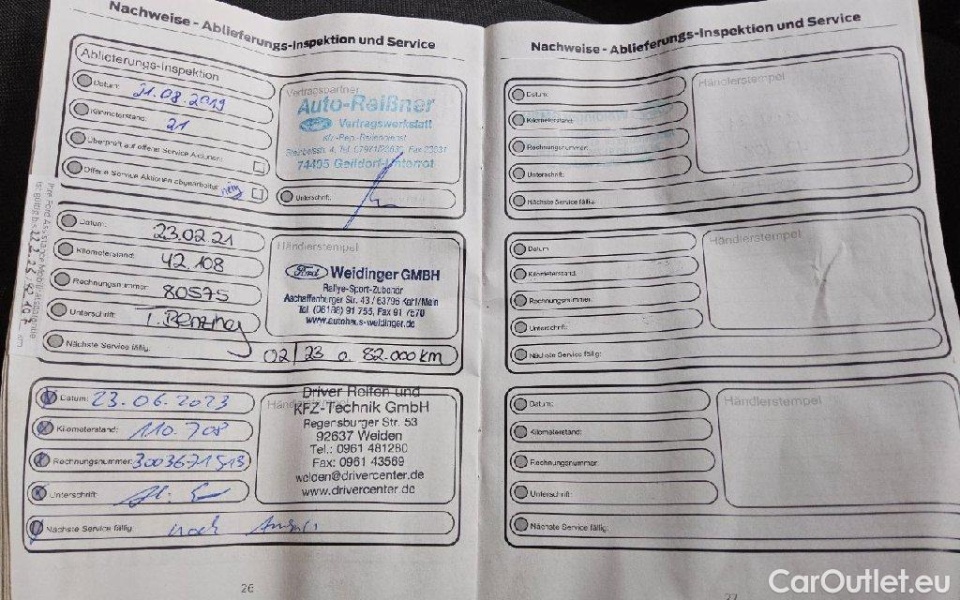 Nachweise - Ablieferungs-Inspektion und Service
Ablieferungs-Inspektion
Datum: 21.08.2019
Kilometerstand: 21
Überprüft auf offene Service Aktionen:
Offene Service Aktionen abgearbeitet: nein
Vertragspartner
Auto-Reißner
Ford Vertragswerkstatt
74405 Gaildorf-Unterrot
Unterschrift:
Datum: 23.02.21
Kilometerstand: 42.108
Rechnungsnummer: 80575
Unterschrift:
Nächste Service fällig: 02/23 o. 82.000 km
Händlerstempel
Ford Weidinger GMBH
Rallye-Sport-Zubehör
Aschaffenburger Str. 43 / 63796 Karl/Main
Tel. (06188) 91 755, Fax 91 7570
www.autohaus-weidinger.de
Datum: 23.06.2023
Kilometerstand: 110.708
Rechnungsnummer: 3003671513
Unterschrift:
Nächste Service fällig: nach
Driver Reifen und
KFZ-Technik GmbH
Regensburger Str. 53
92637 Weiden
Tel.: 0961 481280
Fax: 0961 43569
weiden@drivercenter.de
www.drivercenter.de
26
Nachweise - Ablieferungs-Inspektion und Service
Datum:
Kilometerstand:
Rechnungsnummer:
Unterschrift:
Nächste Service fällig:
Händlerstempel
Datum:
Kilometerstand:
Rechnungsnummer:
Unterschrift:
Nächste Service fällig:
Händlerstempel
Datum:
Kilometerstand:
Rechnungsnummer:
Unterschrift:
Nächste Service fällig:
Händlerstempel
27
CarOutlet.eu